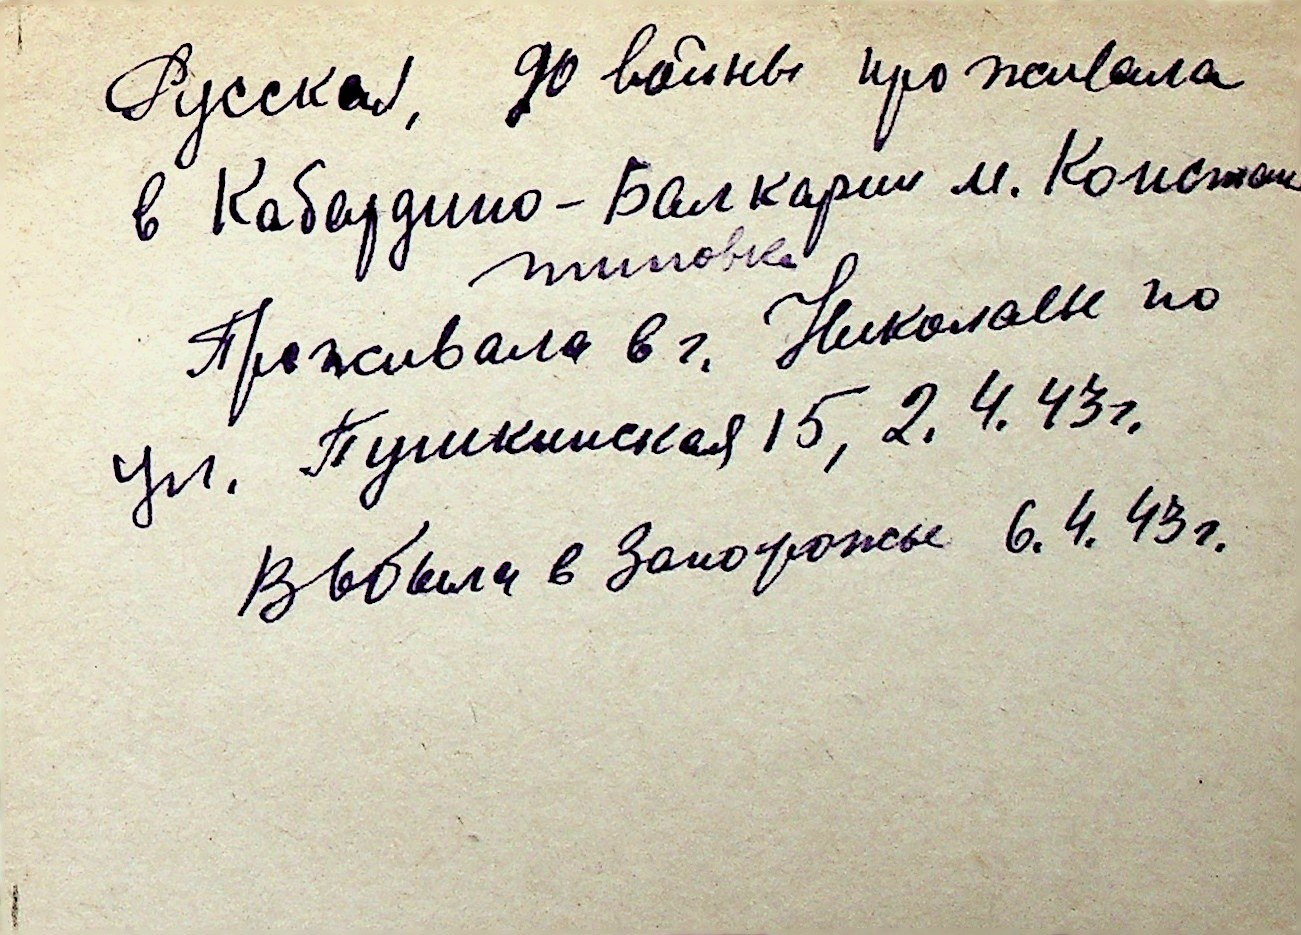 Русская, до войны проживала
в Кабардино-Балкарии м. Констан
тиновка
Проживала в г. Николаеве по
ул. Пушкинская 15, 2.4.43г.
Выбыла в Запорожье 6.4.43г.